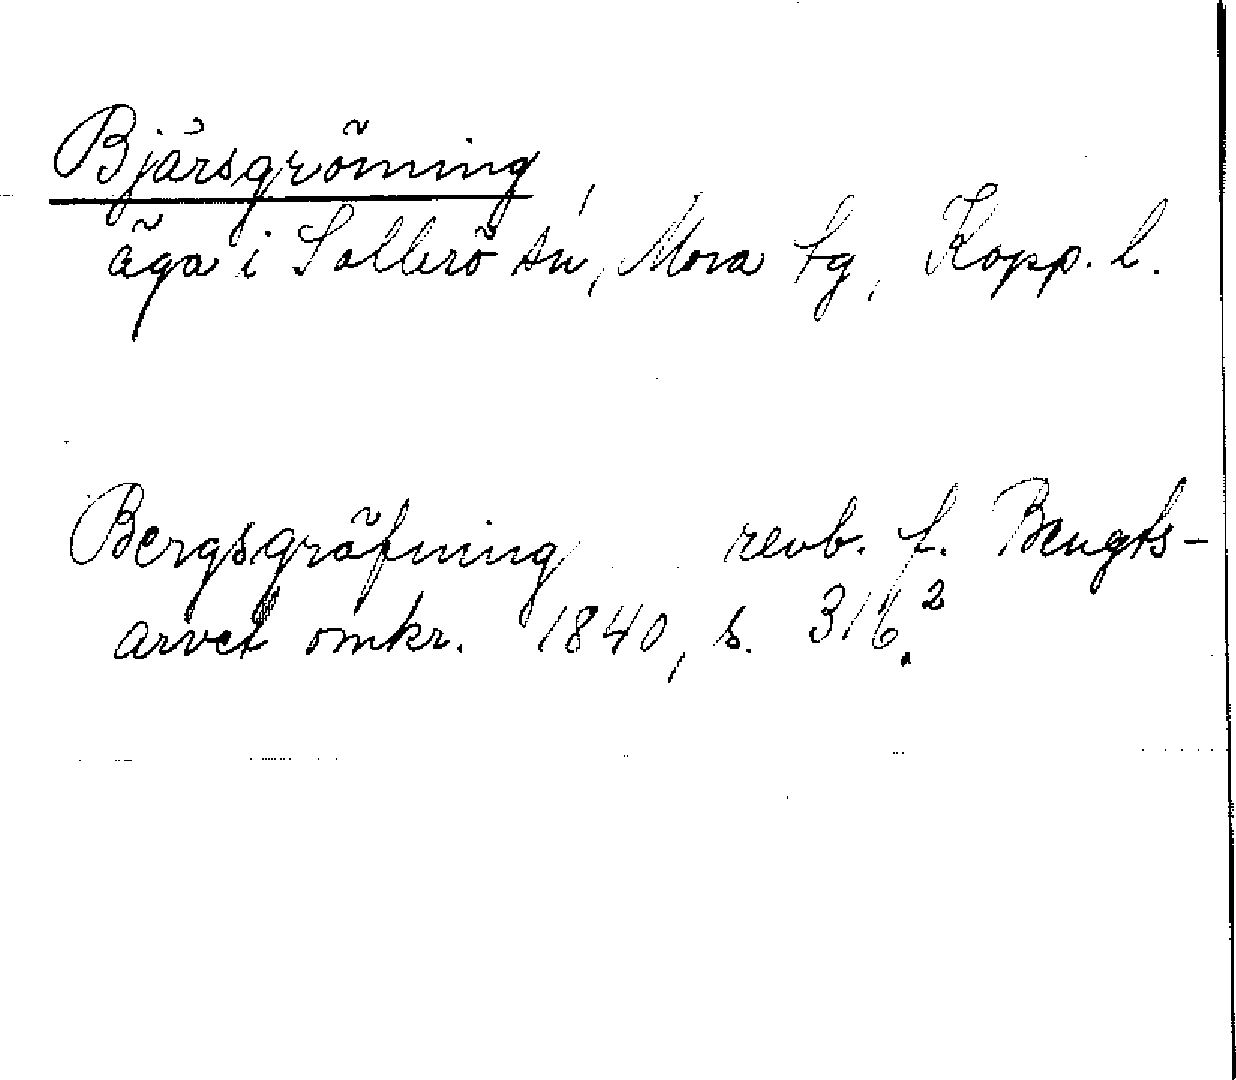 Bjårsgröning
äga i Sollerö sn, Mora tg, Kopp. l.
Bergsgräfning revb. f. Bengts-
arvet omkr. 1840, s. 316².